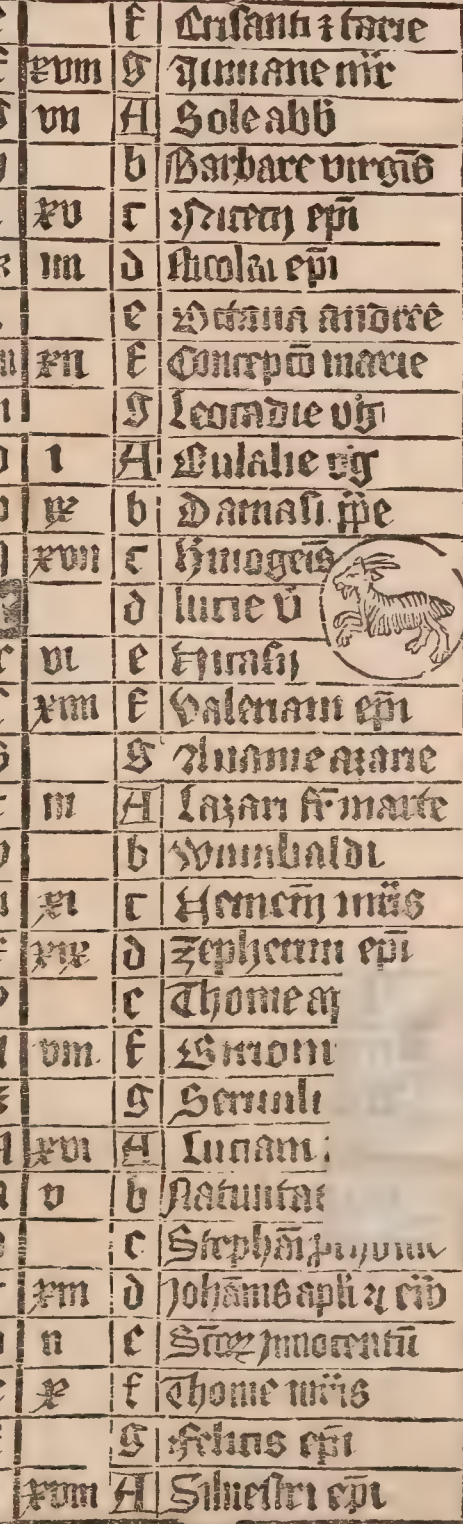 f Crisanti ⁊ darie
xviii g Viuiane mr̄
vii A Sole abb̄
b Barbare virgīs
xv c Nicecij ep̄i
iiii d Nicolai ep̄i
e Octaua andree
xii f Concepcō marie
g Leocadie v̄g
i A Eulalie v̄g
ix b Damasi p̄pe
xvii c
d lucie v̄
vi e
xiiii f Valeriani ep̄i
g Ananie azarie
iii A Lazari fr̄ marte
b Wunibaldi
xi c Nemesij mr̄is
xix d Zepherini ep̄i
e Thome ap
viii f
g Seruuli
xvi A Luciani
v b Natiuitat
c Stephāi
xiii d Johānis apli ⁊ ew̄
ii e Sctōꝝ Innocentū
x f Thome mr̄is
g Felicis ep̄i
xviii A Siluestri ep̄i